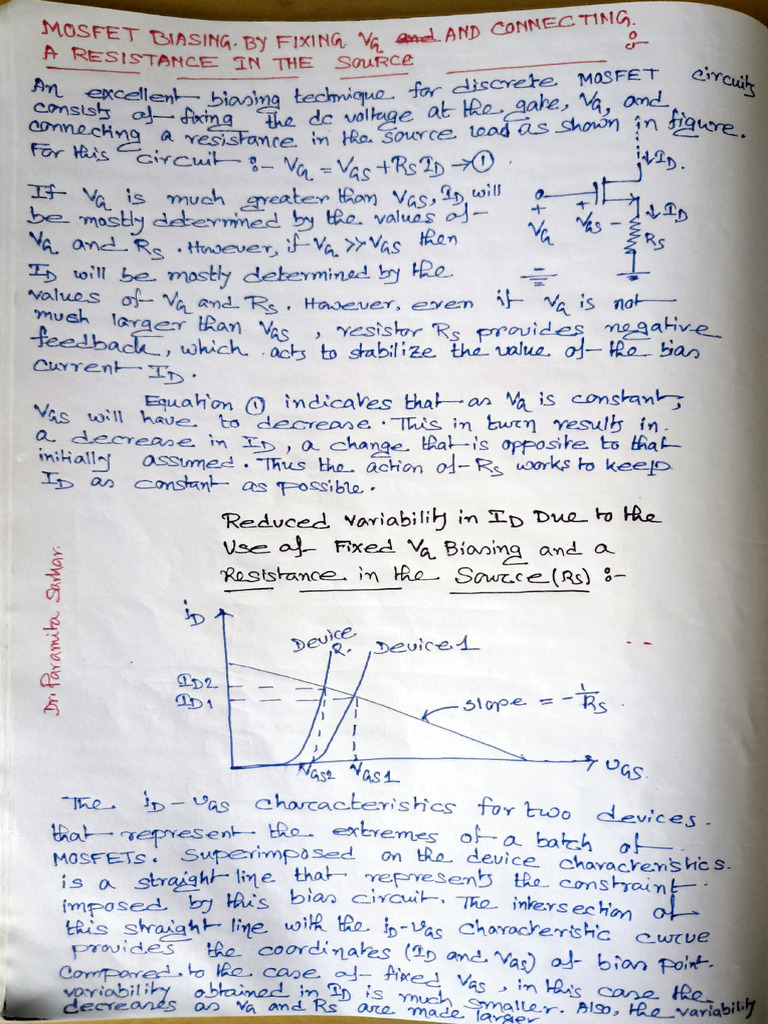 MOSFET BIASING. BY FIXING VG AND CONNECTING
A RESISTANCE IN THE SOURCE :-
An excellent biasing technique for discrete MOSFET circuits
consists of fixing the dc voltage at the gate, VG, and
connecting a resistance in the source lead as shown in figure.
For this circuit :- VG = VGS + RS ID → ①
If VG is much greater than VGS, ID will
be mostly determined by the values of
VG and RS. However, if VG >> VGS then
ID will be mostly determined by the
values of VG and RS. However, even if VG is not
much larger than VGS, resistor RS provides negative
feedback, which acts to stabilize the value of the bias
current ID.
↓ID.
+
VG
+
VGS -
↓ID
RS
Equation ① indicates that as VG is constant,
VGS will have to decrease. This in turn results in
a decrease in ID, a change that is opposite to that
initially assumed. Thus the action of RS works to keep
ID as constant as possible.
Reduced variability in ID Due to the
Use of Fixed VG Biasing and a
Resistance in the Source (RS) :-
Dr. Paramita Sarkar.
iD
Device 2.
Device 1
ID2
ID1
slope = -1/RS.
VGS2 VGS1
υGS.
The iD-υGS characteristics for two devices.
that represent the extremes of a batch of
MOSFETs. Superimposed on the device characteristics.
is a straight line that represents the constraint
imposed by this bias circuit. The intersection of
this straight line with the iD-υGS characteristic curve
provides the coordinates (ID and VGS) of bias point.
Compared to the case of fixed VGS, in this case the
variability obtained in ID is much smaller. Also, the variability
decreases as VG and RS are made larger